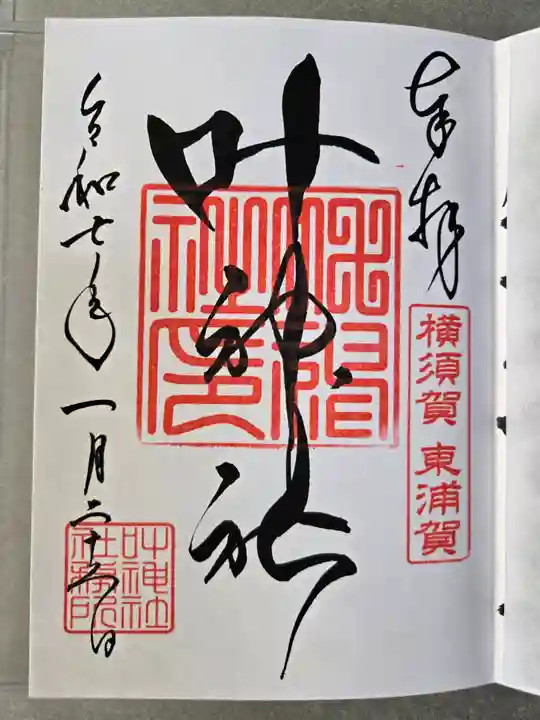 奉拝
横須賀 東浦賀
叶神社
令和七年 一月二十六日
叶神社
社務所